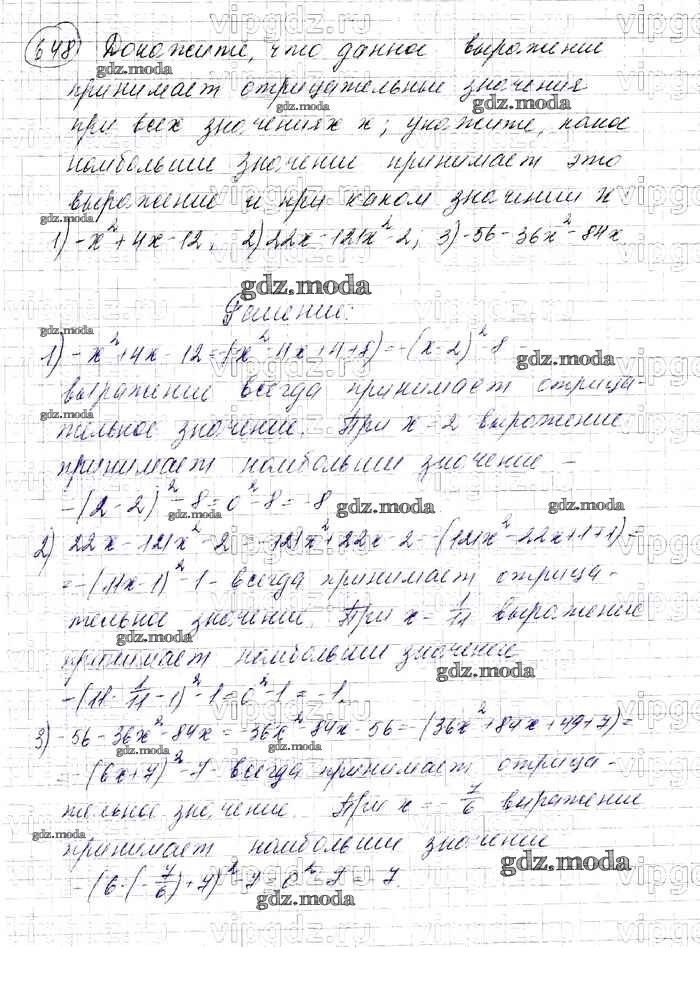 648) Докажите, что данное выражение
принимает отрицательные значения
при всех значениях x; укажите, какое
наибольшее значение принимает это
выражение и при каком значении x
1) -x²+4x-12; 2) 22x-121x²-2; 3) -56-36x²-84x
Решение:
1) -x²+4x-12=-(x²-4x+4+8)=-(x-2)²-8 -
выражение всегда принимает отрица-
тельное значение. При x=2 выражение
принимает наибольшее значение -
-(2-2)²-8=0²-8=-8
2) 22x-121x²-2=-121x²+22x-2=-(121x²-22x+1+1)=
=-(11x-1)²-1 - всегда принимает отрица-
тельное значение. При x=1/11 выражение
принимает наибольшее значение
-(11·1/11-1)²-1=0²-1=-1.
3) -56-36x²-84x=-36x²-84x-56=-(36x²+84x+49+7)=
=-(6x+7)²-7 - всегда принимает отрица-
тельное значение. При x=-7/6 выражение
принимает наибольшее значение
-(6·(-7/6)+7)²-7=0²-7=-7.
gdz.moda
vipgdz.ru